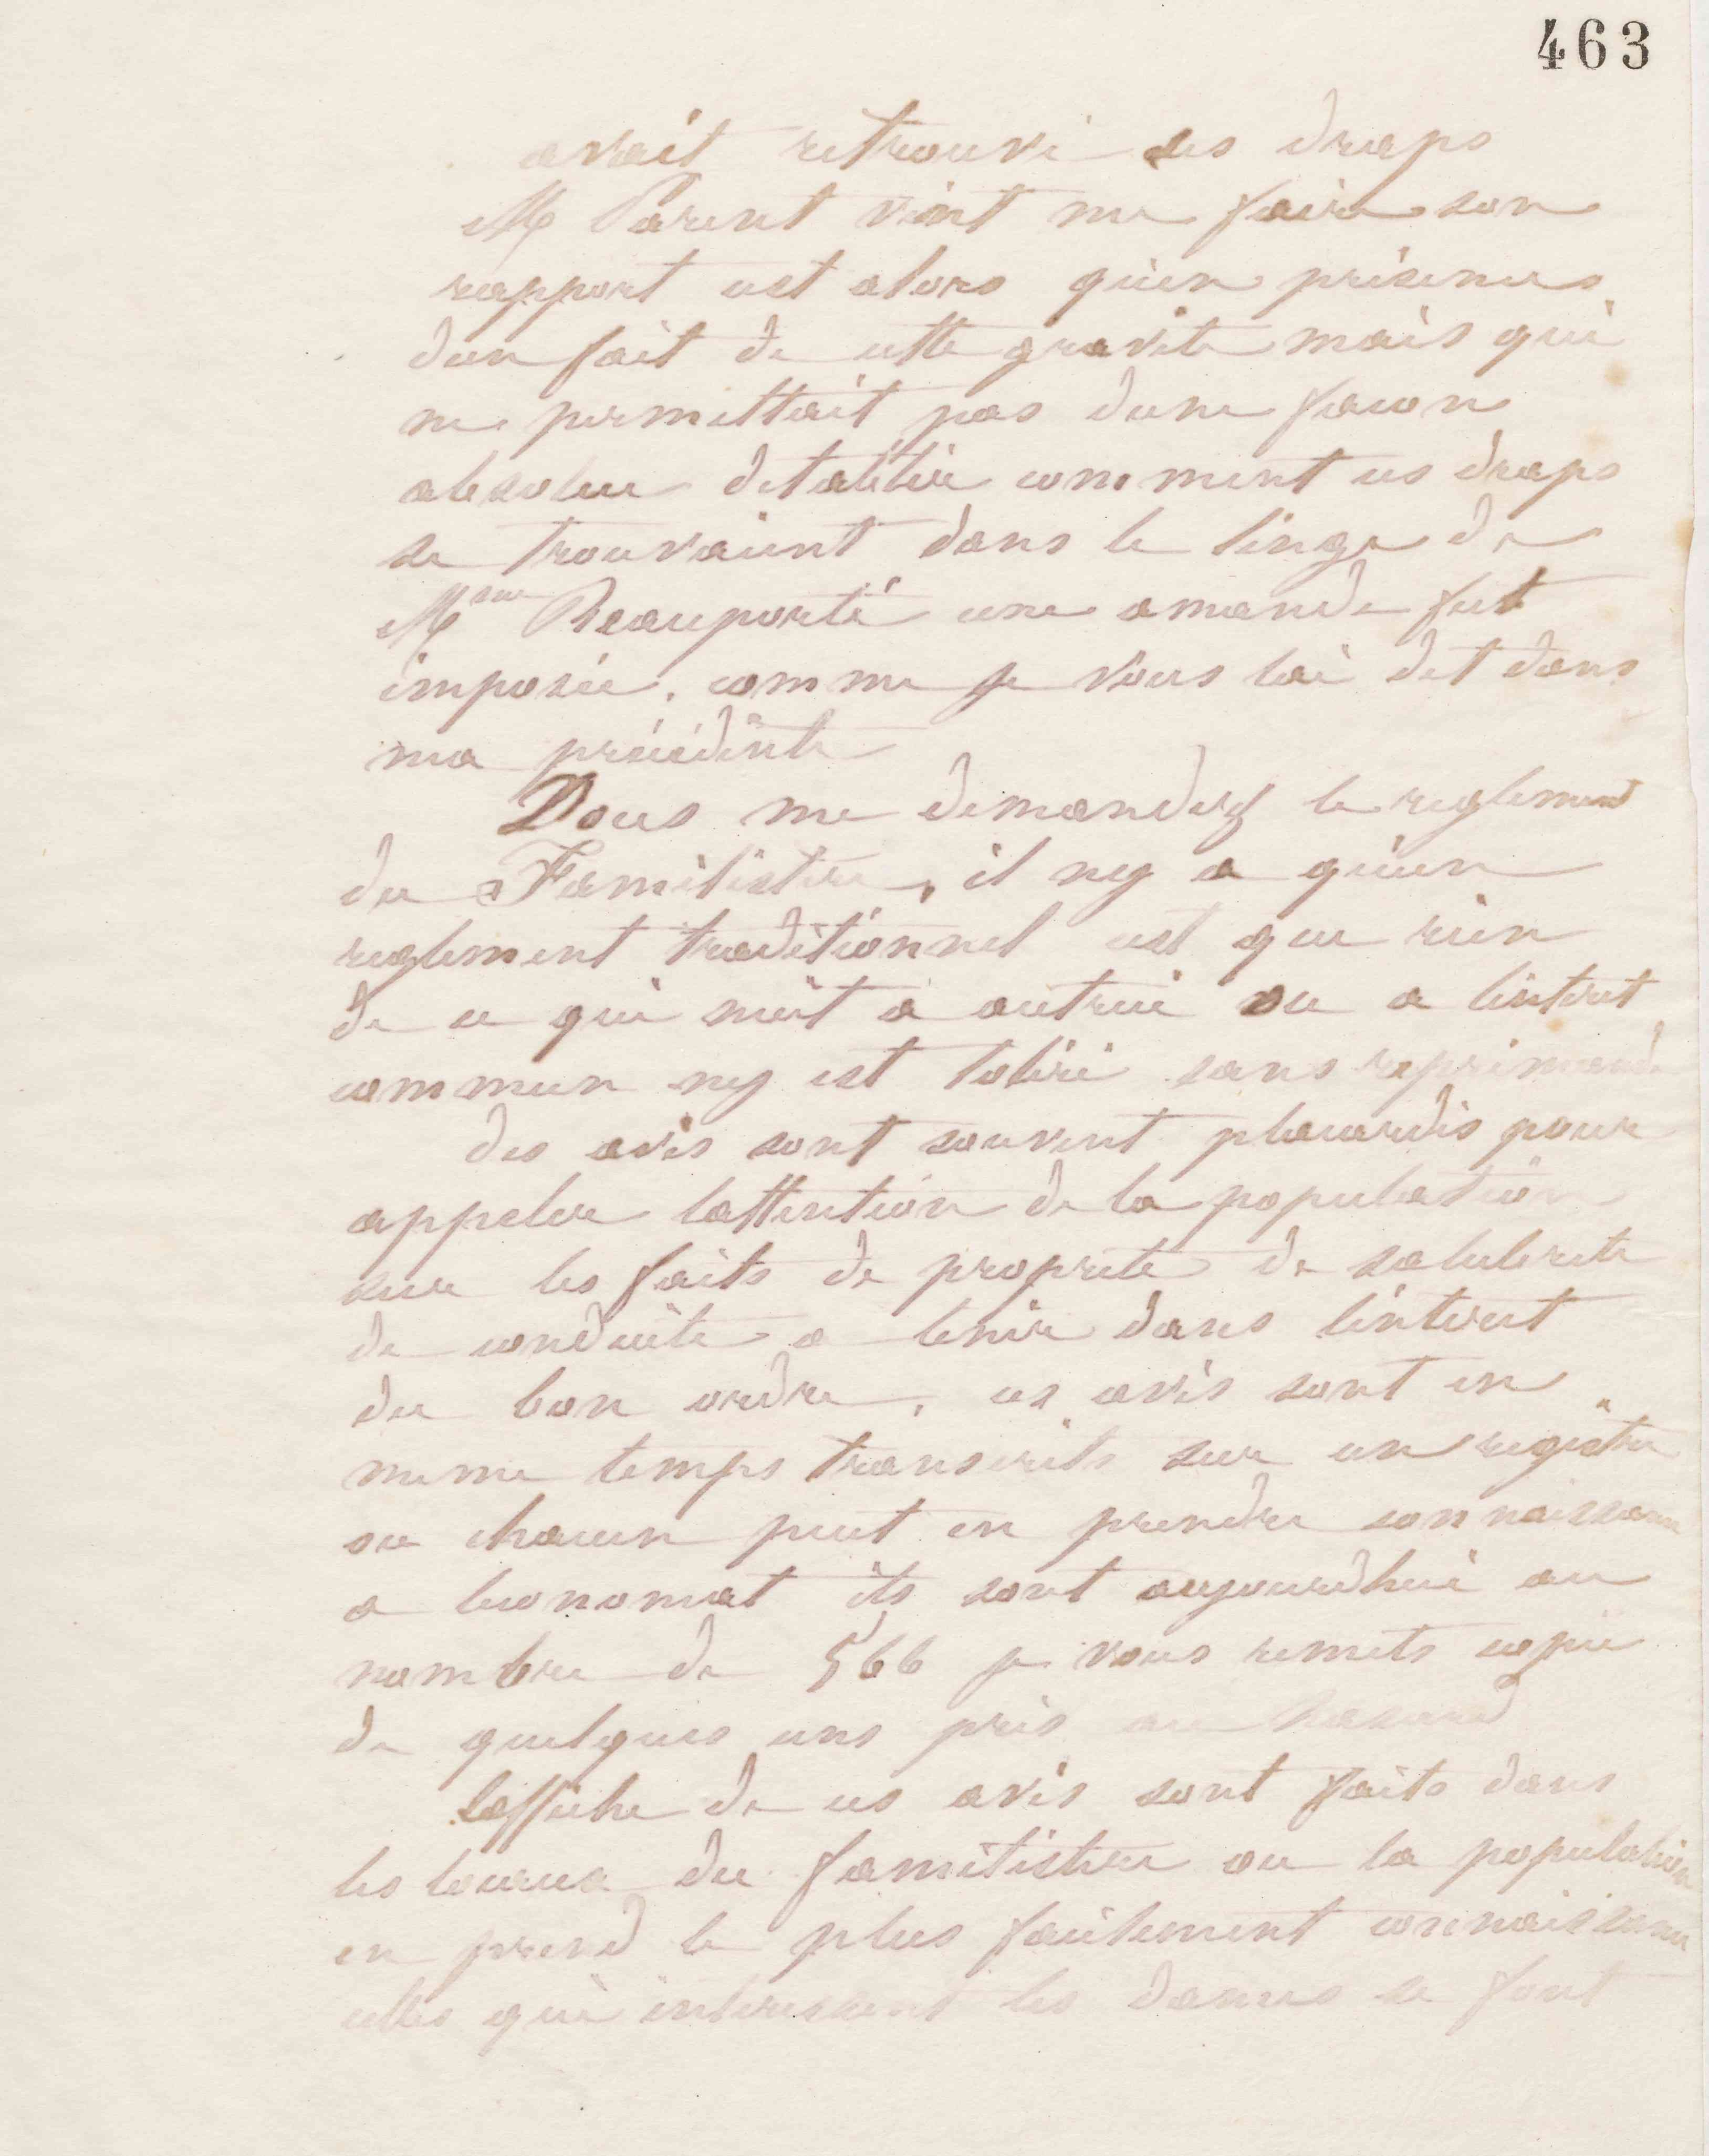 463
avait retrouvé ses draps
M Parent vint me faire son
rapport cest alors quen présence
dun fait de cette gravité mais qui
ne permettait pas dune facon
absolue détablir comment ces draps
se trouvaient dans le linge de
Mme Beauporté une amande fut
imposée, comme je vous lai dit dans
ma précédente
Vous me demandez le reglement
du Familistère, il ny a quun
reglement traditionnel cest que rien
de ce qui nuit a autrui ou a linteret
commun ny est toléré sans reprimande
des avis sont souvent placardés pour
appeler lattention de la population
sur les faits de propreté de salubrité
de conduite a tenir dans linteret
du bon ordre, ces avis sont en
meme temps transcrits sur un registre
ou chacun peut en prendre connaissance
a leconomat ils sont aujourdhui au
nombre de 566 je vous remets copie
de quelques uns pris au hasard
laffiche de ces avis sont faits dans
les locaux du familistère ou la population
en prend le plus facilement connaissance
celles qui interessent les dames se font